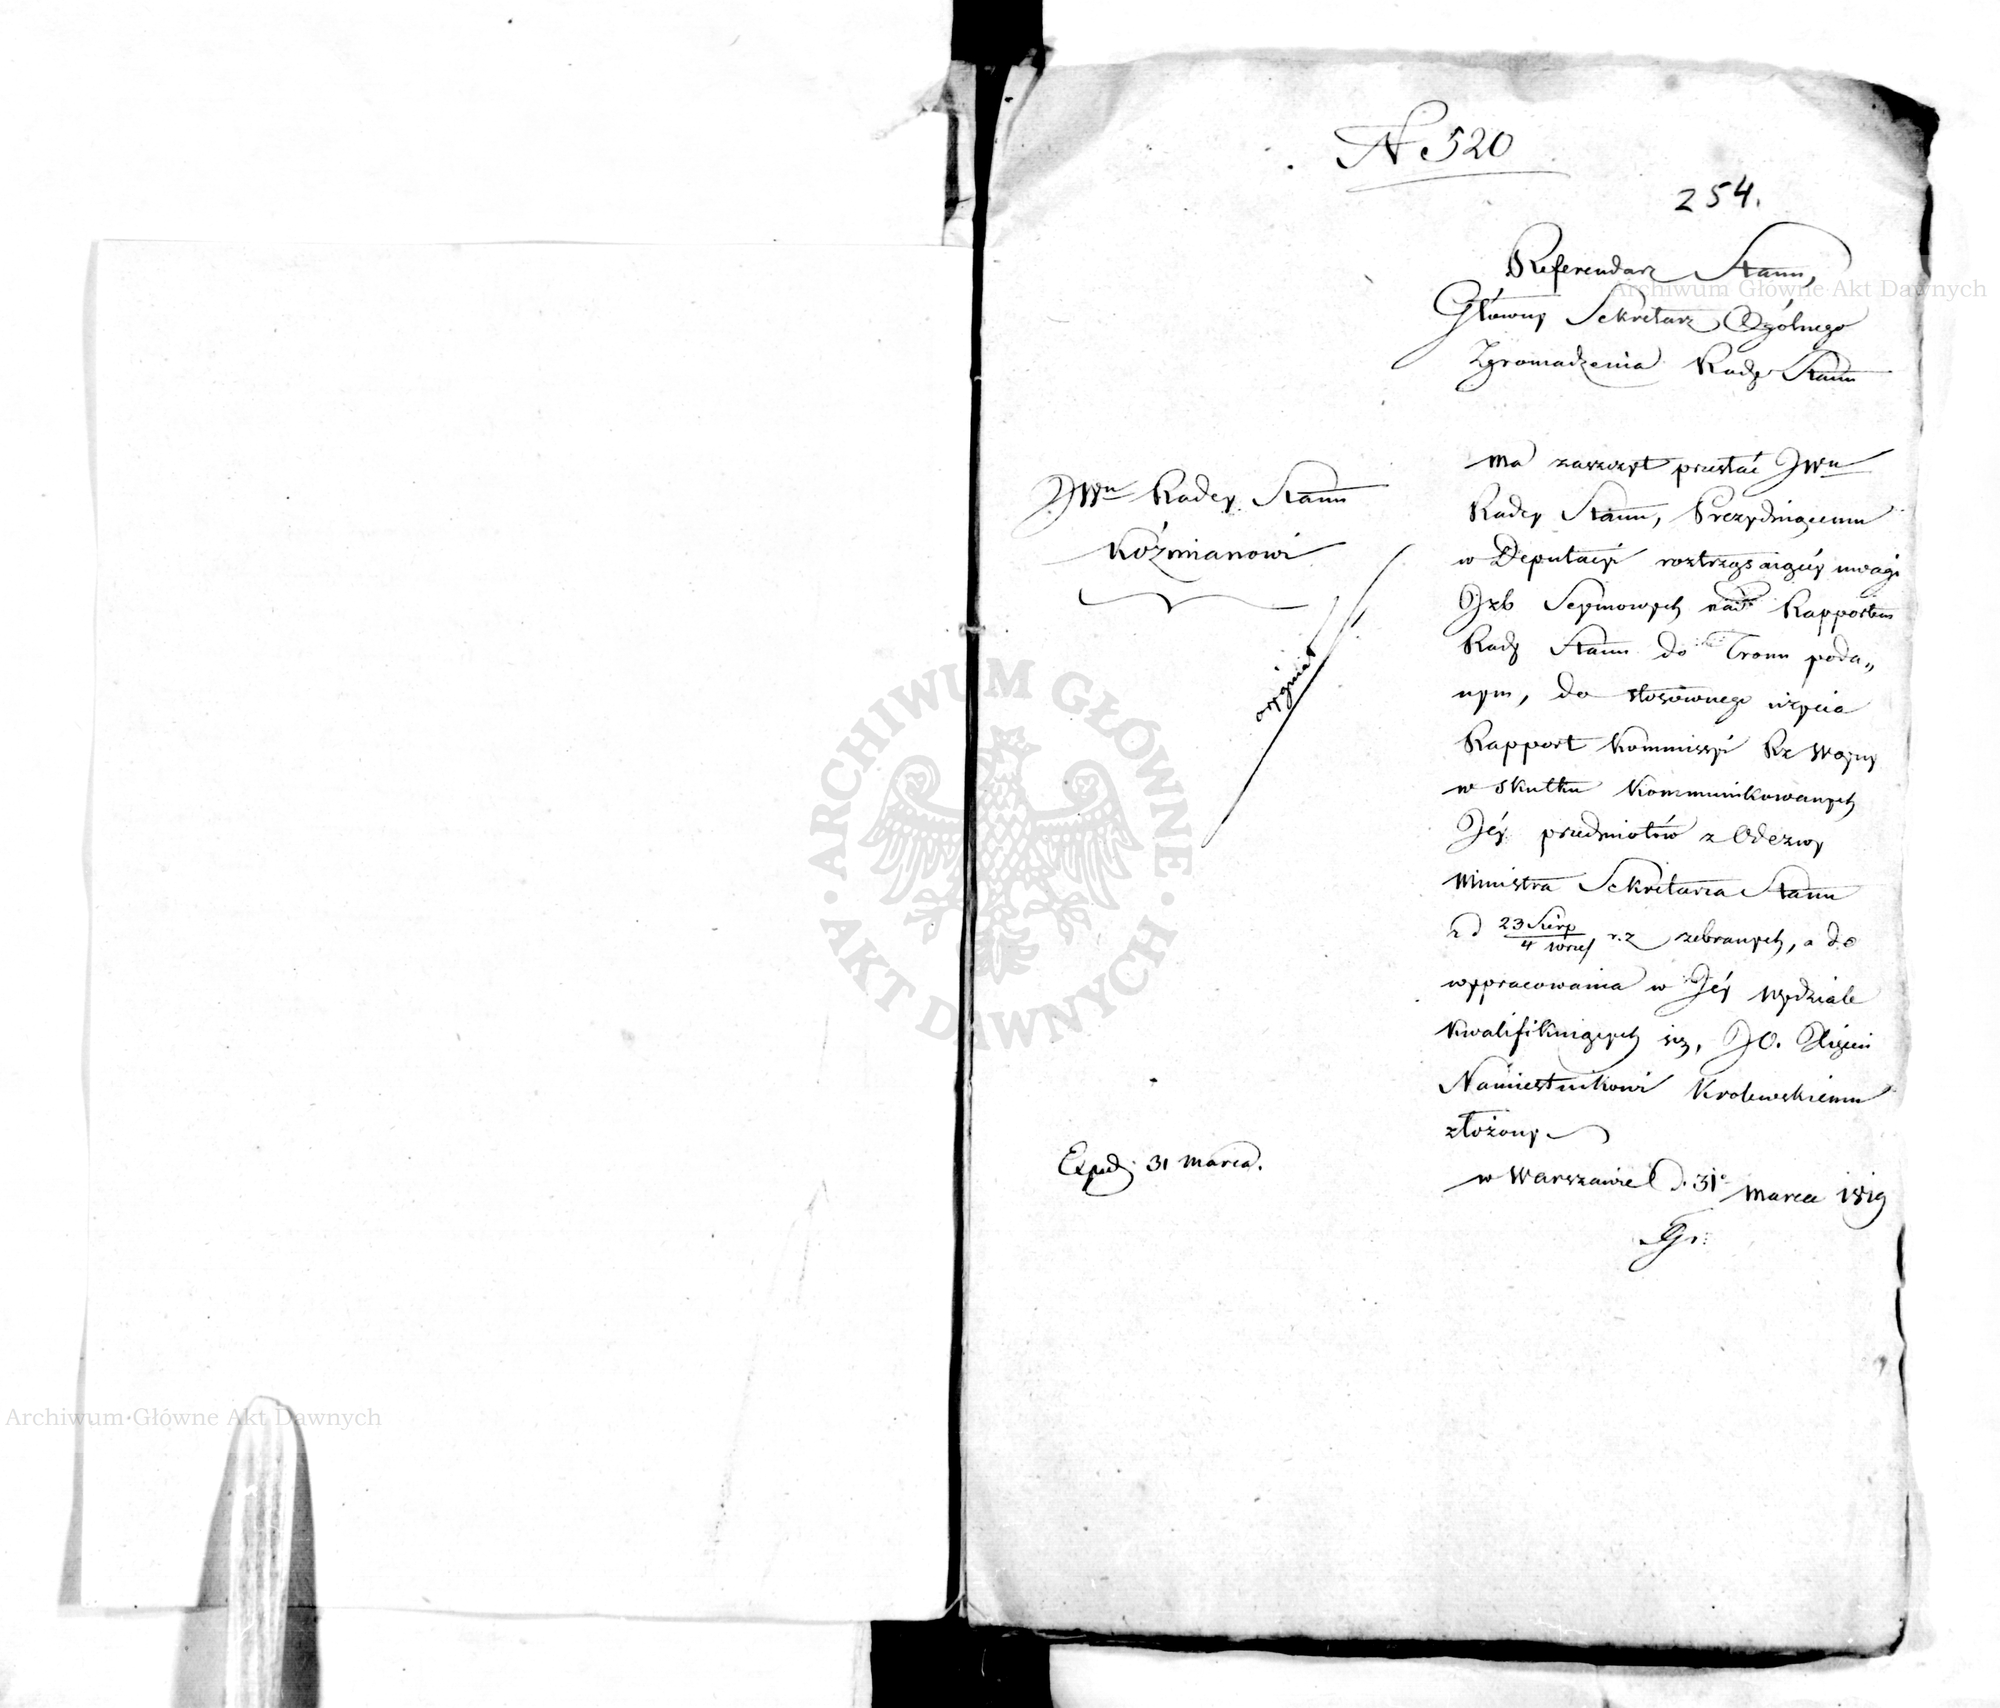 N 520
254.
Referendarz Stanu,
Główny Sekretarz Ogólnego
Zgromadzenia Rady Stanu
JWu Radcy Stanu
Koźmianowi
oryginał
ma zaszczyt przesłać JWu
Radcy Stanu, Prezyduiącemu
w Deputacyi roztrząsaiącéy uwagi
Jzb Seymowych nad Rapportem
Rady Stanu do Tronu poda„
nym, do stosownego użycia
Rapport Kommissyi Rz Woyny
w skutku kommunikowanych
Jéy przedmiotów z Odezwy
Ministra Sekretarza Stanu
z d 23 Sierp / 4 Wrześ r. z zebranych, a do
wypracowania w Jéy wydziale
kwalifikuiących się, JO. Xięciu
Namiestnikowi Krolewskiemu
złożony.
w Warszawie d. 31 marca 1819
Exped. 31 marca.
Archiwum Główne Akt Dawnych
Archiwum Główne Akt Dawnych
ARCHIWUM GŁÓWNE · AKT DAWNYCH ·